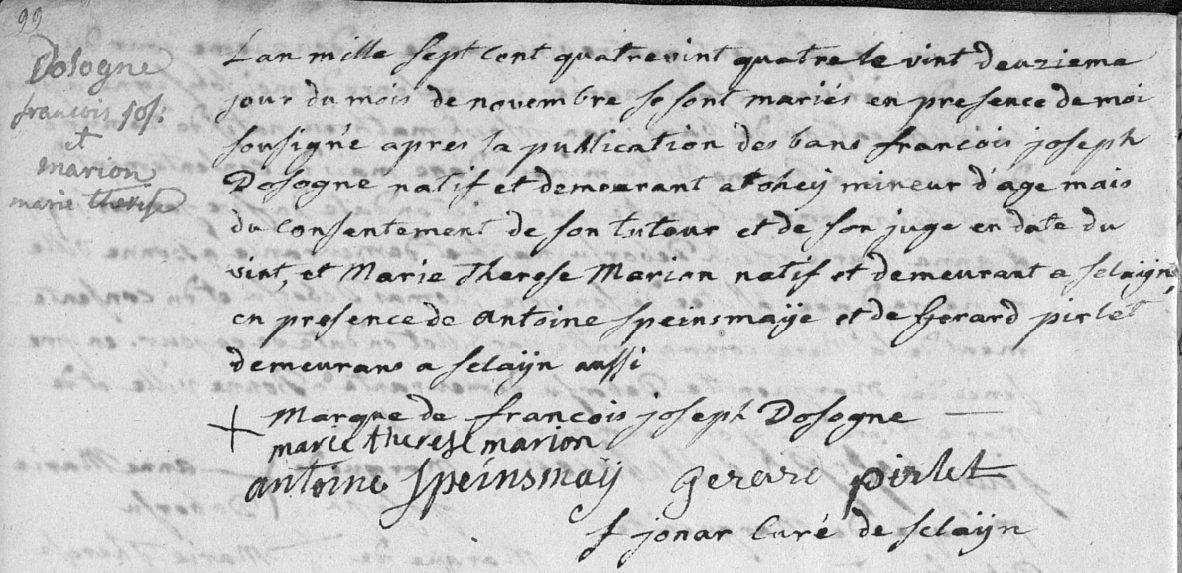 99
Dosogne
françois jos:
et
marion
marie therese
L'an mille sept cent quatrevint quatre le vint deuzieme
jour du mois de novembre se sont mariés en presence de moi
sousigné apres la publication des bans françois joseph
Dosogne natif et demeurant a ohey mineur d'age mais
du consentement de son tuteur et de son juge en date du
vint, et Marie Therese Marion natif et demeurant a sclaijn,
en présence de Antoine speinsmaÿe et de Gerard pirlet
demeurans a sclaijn aussi
+ marque de francois joseph Dosogne
marie therese marion
antoine Speinsmaÿ gerard pirlet
jonar Curé de sclaijn